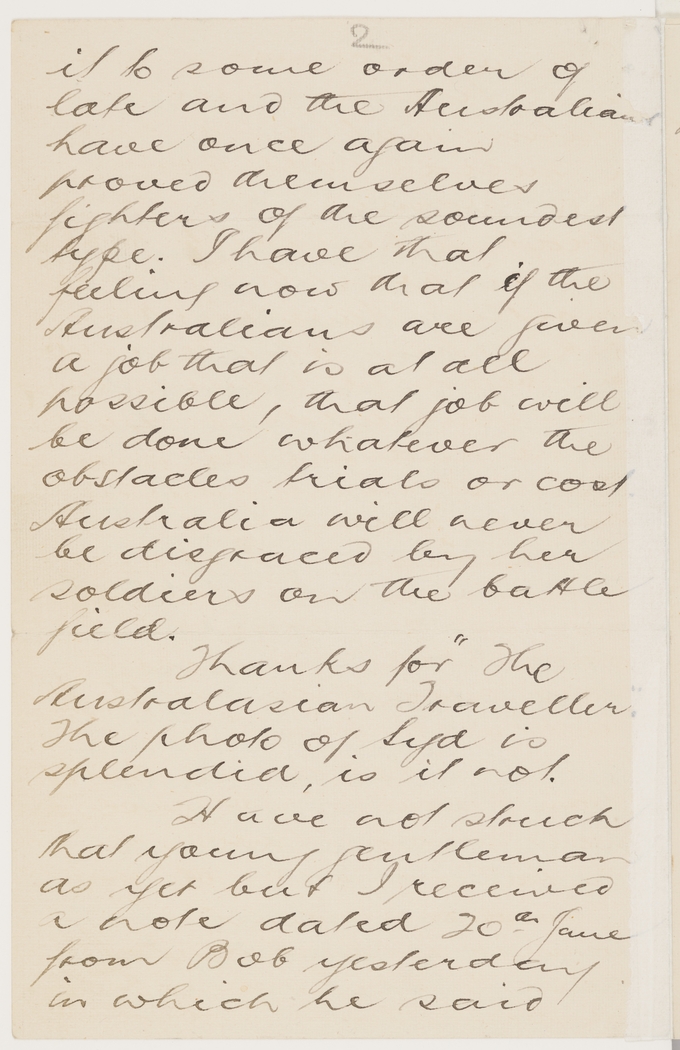 2
it to some order of
late and the Australians
have once again
proved themselves
fighters of the soundest
type. I have that
feeling now that if the
Australians are given
a job that is at all
possible, that job will
be done whatever the
obstacles trials or cost
Australia will never
be disgraced by her
soldiers on the battle
field.
Thanks for " The
Australasian Traveller
The photo of Syd is
splendid, is it not.
Have not struck
that young gentleman
as yet but I received
a note dated 20th June
from Bob yesterday
in which he said